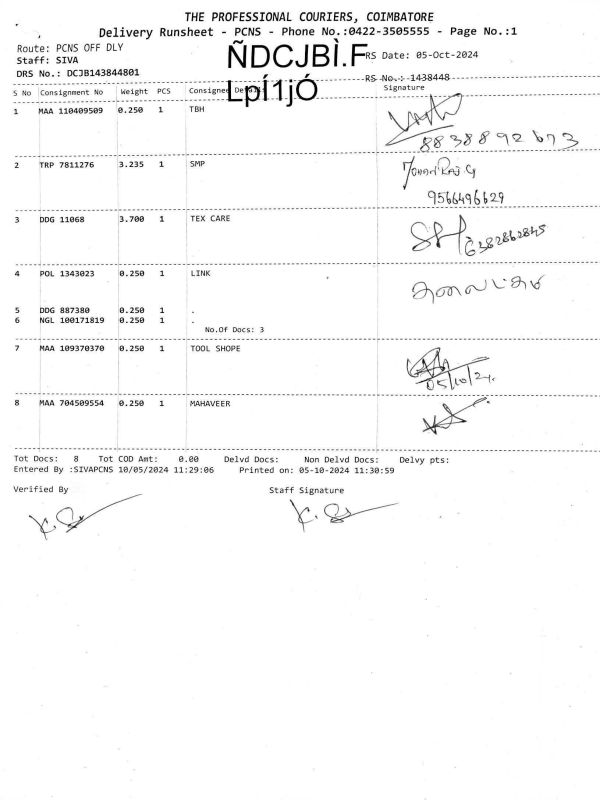 THE PROFESSIONAL COURIERS, COIMBATORE
Delivery Runsheet - PCNS - Phone No.:0422-3505555 - Page No.:1
Route: PCNS OFF DLY
Staff: SIVA
DRS No.: DCJB143844801
ÑDCJBÌ.F
LpÍ1jÓ
RS Date: 05-Oct-2024
RS No.: 1438448
S No Consignment No Weight PCS Consignee Details Signature
1 MAA 110409509 0.250 1 TBH
8838892673
2 TRP 7811276 3.235 1 SMP
MOHAN RAJ G
9566496629
3 DDG 11068 3.700 1 TEX CARE
6382862845
4 POL 1343023 0.250 1 LINK
5 DDG 887380 0.250 1 .
6 NGL 100171819 0.250 1 .
No.Of Docs: 3
7 MAA 109370370 0.250 1 TOOL SHOPE
05/10/24.
8 MAA 704509554 0.250 1 MAHAVEER
Tot Docs: 8 Tot COD Amt: 0.00 Delvd Docs: Non Delvd Docs: Delvy pts:
Entered By :SIVAPCNS 10/05/2024 11:29:06 Printed on: 05-10-2024 11:30:59
Verified By Staff Signature